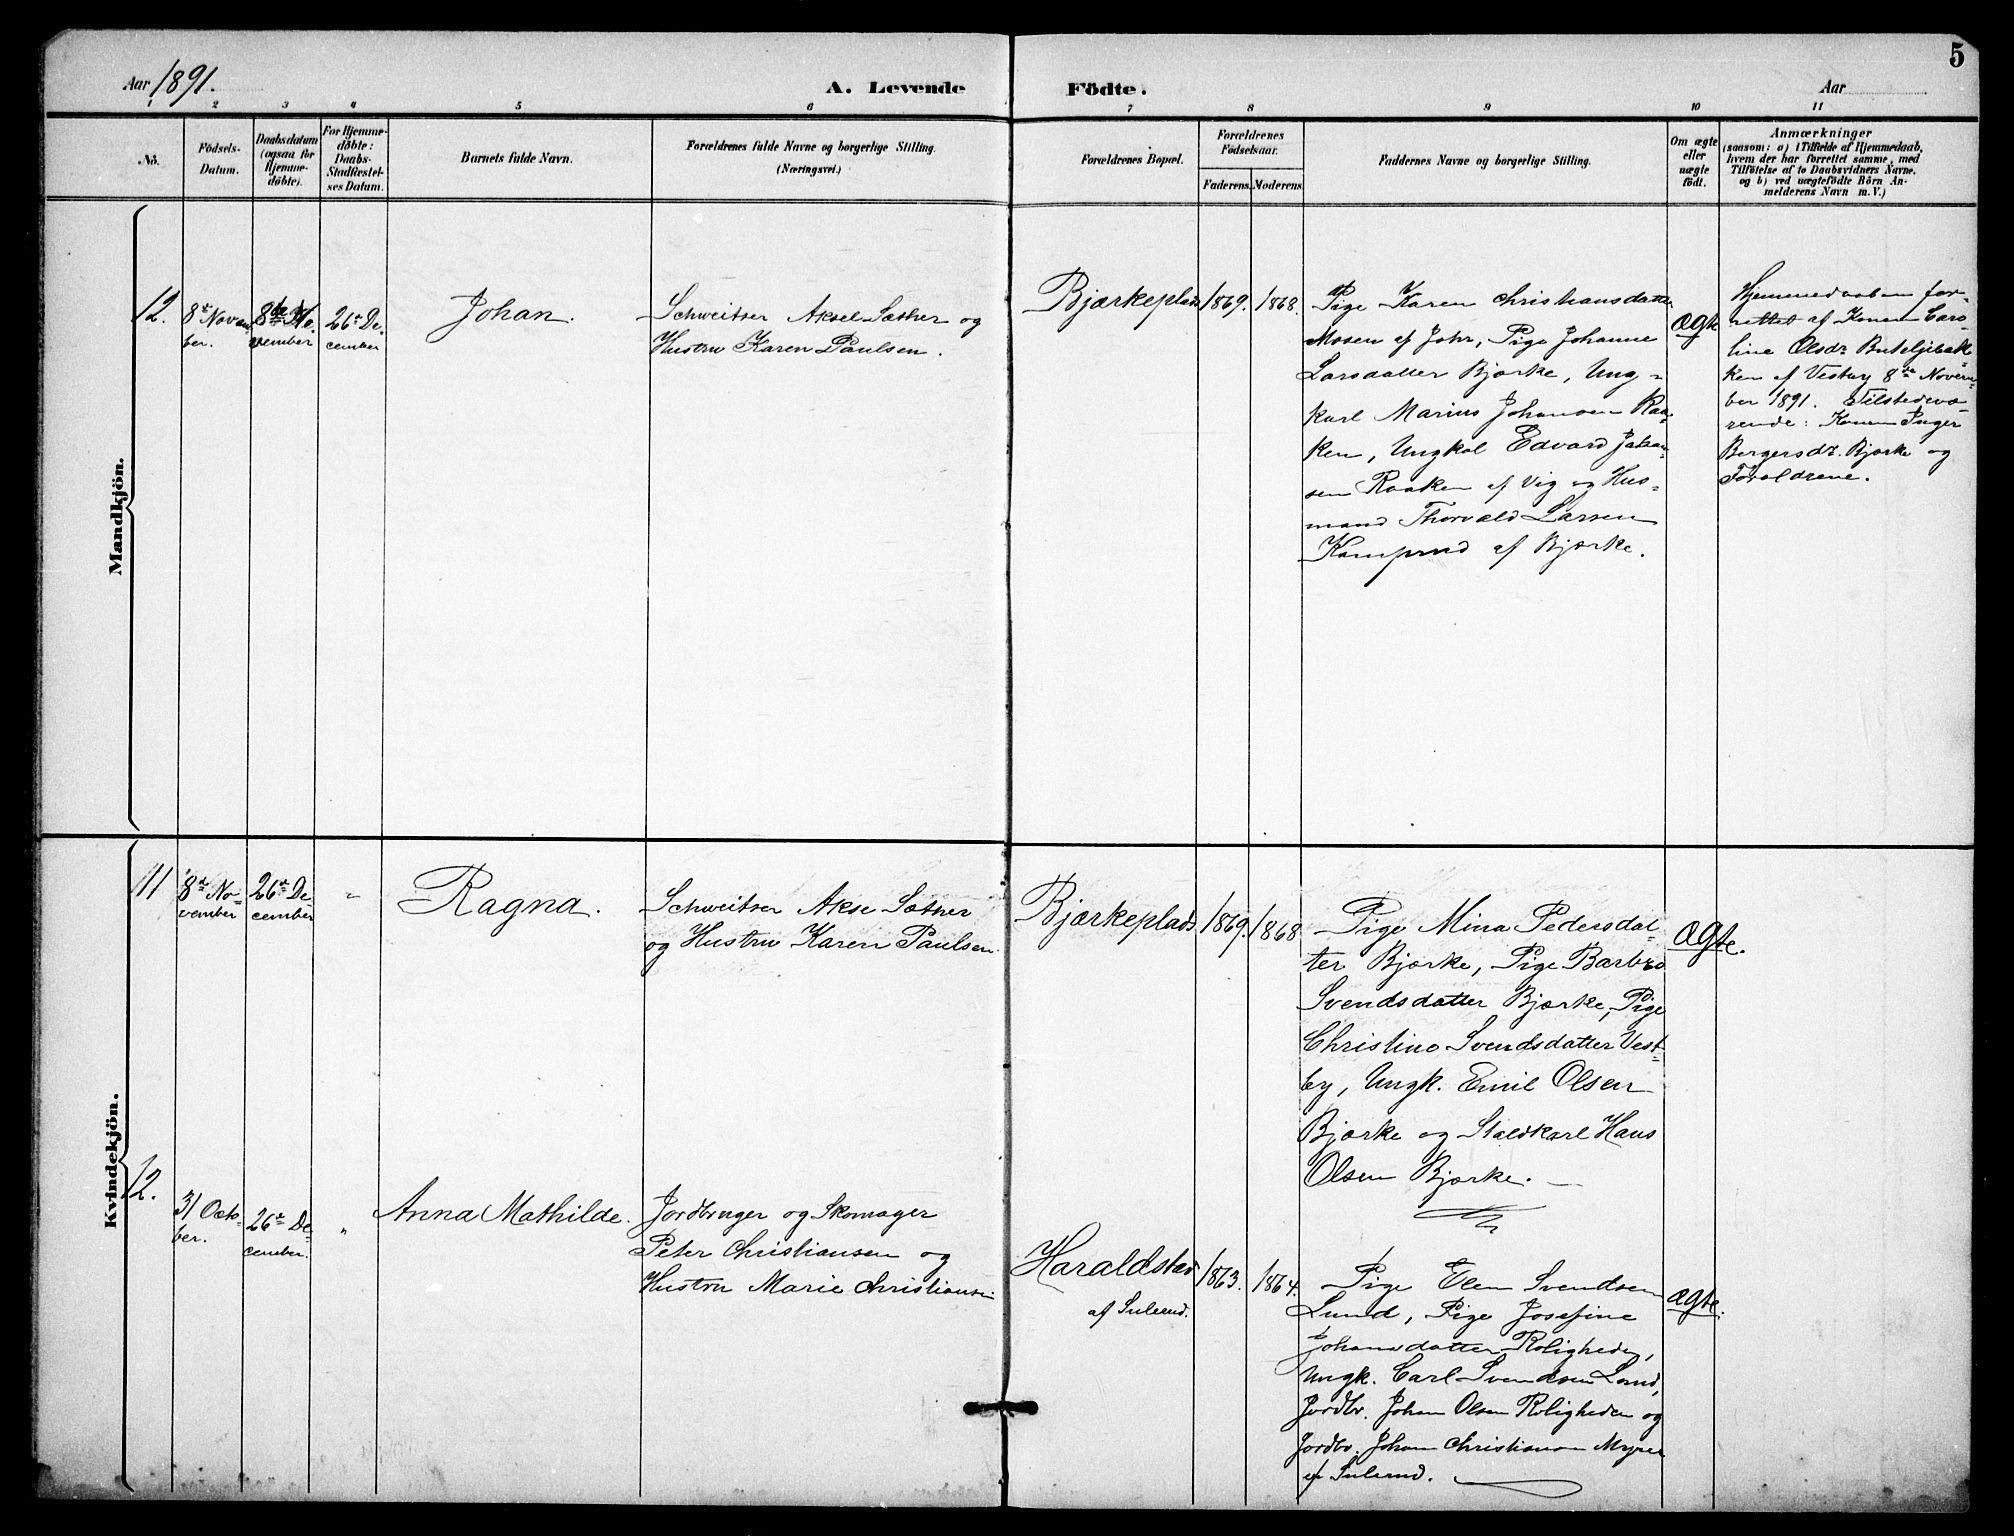 5
Aar 1891.
A. Levende Födte.
Aar
1 2 3 4 5 6 7 8 9 10 11
No.
Födsels-Datum.
Daabsdatum (ogsaa for Hjemme-döbte).
For Hjemme-döbte: Daabs-Stadfæstel-ses Datum.
Barnets fulde Navn.
Forældrenes fulde Navne og borgerlige Stilling.
(Næringsvei.)
Forældrenes Bopæl.
Forældrenes Födselsaar.
Faderens. Moderens.
Faddernes Navne og borgerlige Stilling.
Om ægte eller uægte födt.
Anmærkninger
(saasom: a) i Tilfælde af Hjemmedaab,
hvem der har forrettet samme, med
Tilföielse af to Daabsvidners Navne.
og b) ved uægtefödte Börn An-
melderens Navn m.V.)
Mandkjön.
12.
8de Novem
ber.
8de No.
vember
26de De.
cember
Johan.
Schweitser Aksel Sæther og
Hustru Karen Paulsen.
Bjærkeplads
1869.
1868.
Pige Karen Christiansdatter
Mosen af Johr, Pige Johanne
Larsdatter Bjærke, Ung-
karl Marius Johansen Raa-
ken, Ungkal Edvard Johan-
sen Raaken af Vig og Hus-
mand Thorvald Larsen
Kamprud af Bjærke.
ægte
Hjemmedaaben for-
rettet af Konen Caro-
line Olsdr Buteljebak-
ken af Vestby 8de Novem-
ber 1891. Tilstedevæ-
rende: Konen Inger
Bergersdr. Bjærke og
Forældrene.
Kvindekjön.
11
8de No-
vember
26de De
cember
"
Ragna.
Schweitser Akse Sæther
og Hustru Karen Paulsen.
Bjærkeplads
1869.
1868
Pige Mina Pedersdat-
ter Bjærke, Pige Barbro
Svendsdatter Bjærke, Pige
Christine Svendsdatter Vest-
by, Ungk. Emil Olsen
Bjærke og Staldkarl Hans
Olsen Bjærke.
ægte.
12.
31 Octo-
ber.
26de De-
cember.
"
Anna Mathilde.
Jordbruger og Skomager
Peter Christiansen og
Hustru Marie Christiansen
Haraldstad
af Sulerud.
1863.
1864.
Pige Elen Svendsen
Lund, Pige Josefine
Johansdatter Roligheden,
Ungk. Carl Svendsen Lund,
Jordbr. Johan Olsen Roligheden og
Jordbr. Johan Christiansen Myrer
af Sulerud.
ægte.